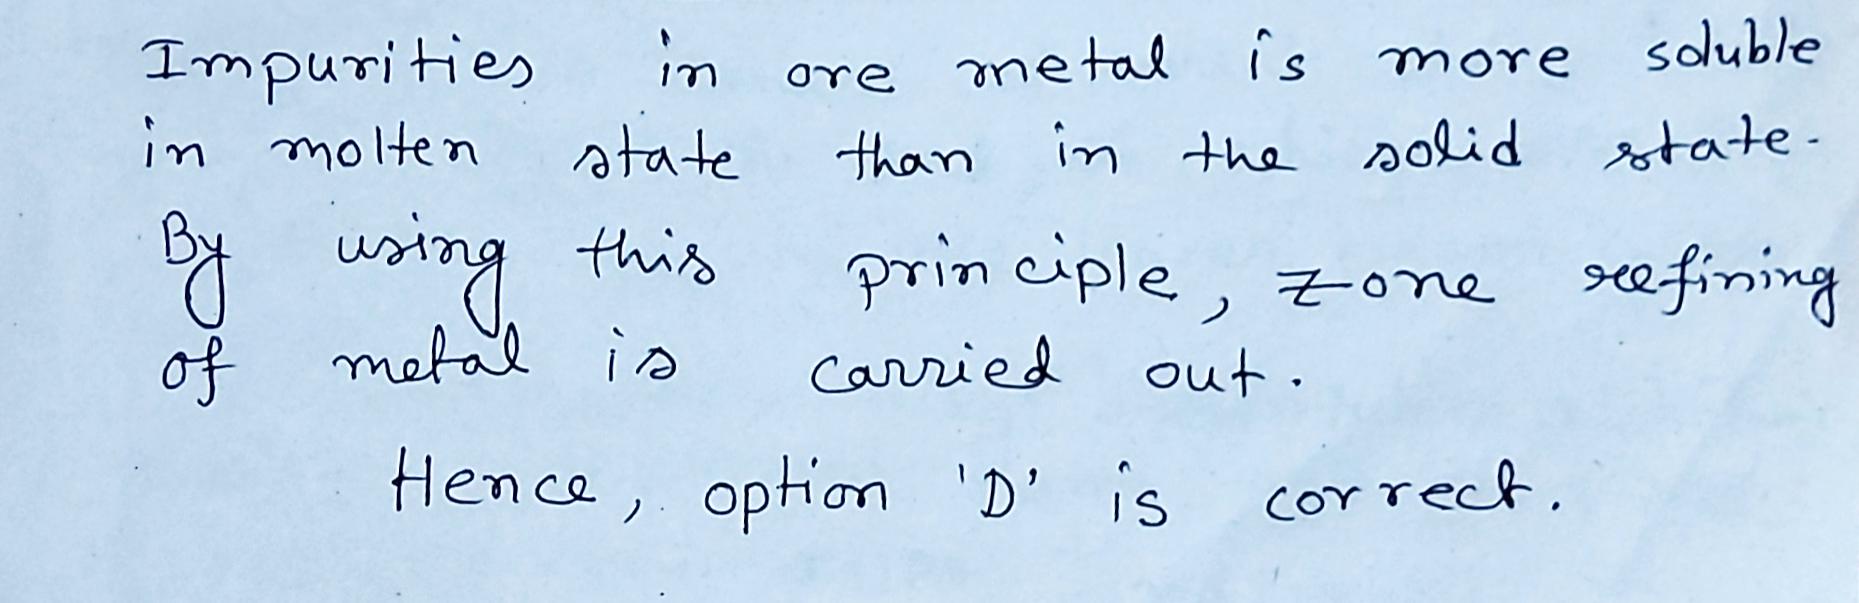 Impurities in ore metal is more soluble
in molten state than in the solid state.
By using this principle, zone refining
of metal is carried out.
Hence, option 'D' is correct.